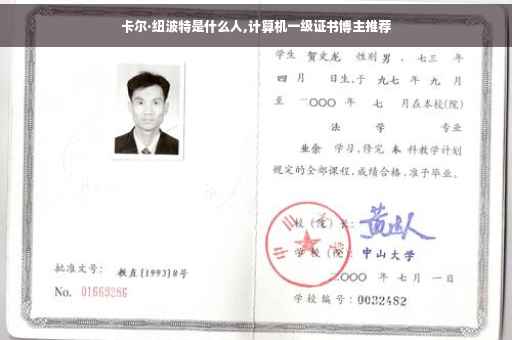 卡尔·纽波特是什么人,计算机一级证书博主推荐
学生 贺文龙 性别 男 、七三 年
四 月 日生,于 九七 年 九 月
至 二〇〇〇 年 七 月在本校(院)
法 学 专业
业余 学习,修完 本 科教学计划
规定的全部课程,成绩合格,准予毕业。
校(院)长:
学校(院): 中山大学
二〇〇〇 年 七 月 一 日
批准文号: 教直[1993]8号
No. 01669286
学校编号: 0032482